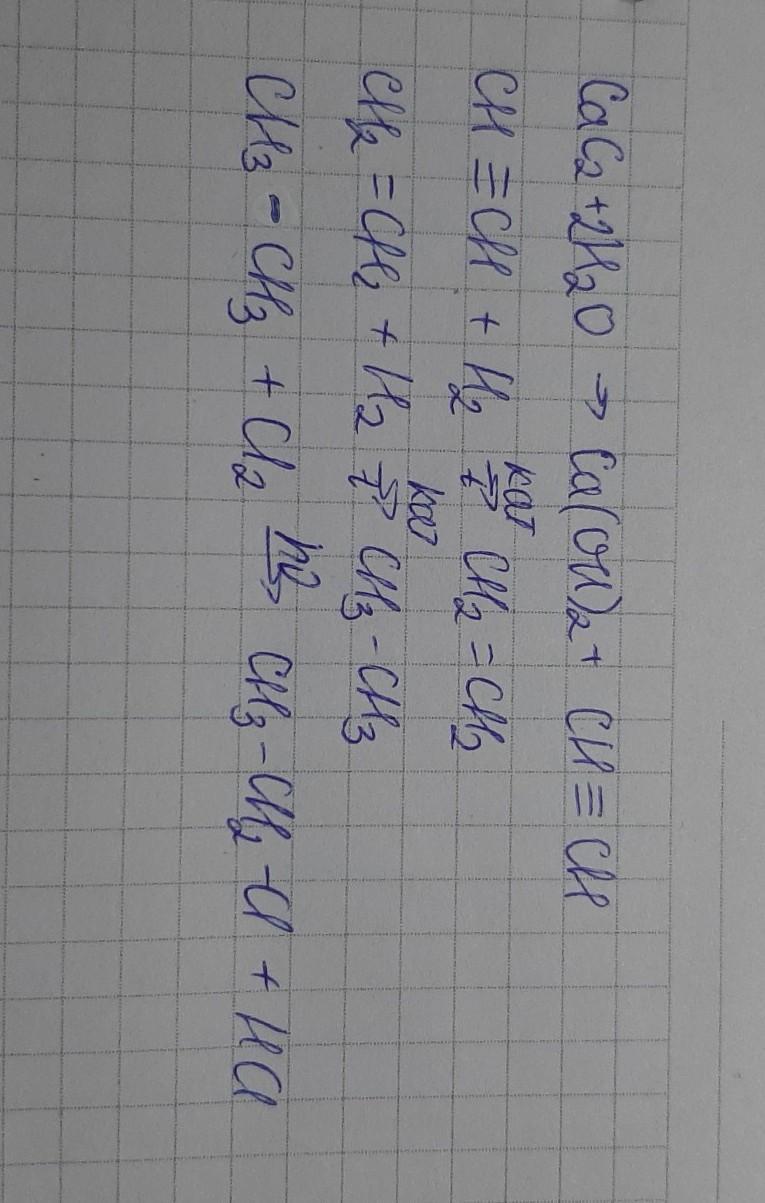 CaC₂ + 2H₂O → Ca(OH)₂ + CH ≡ CH
CH ≡ CH + H₂ кат→t CH₂ = CH₂
CH₂ = CH₂ + H₂ кат→t CH₃ - CH₃
CH₃ - CH₃ + Cl₂ hν→ CH₃ - CH₂ - Cl + HCl